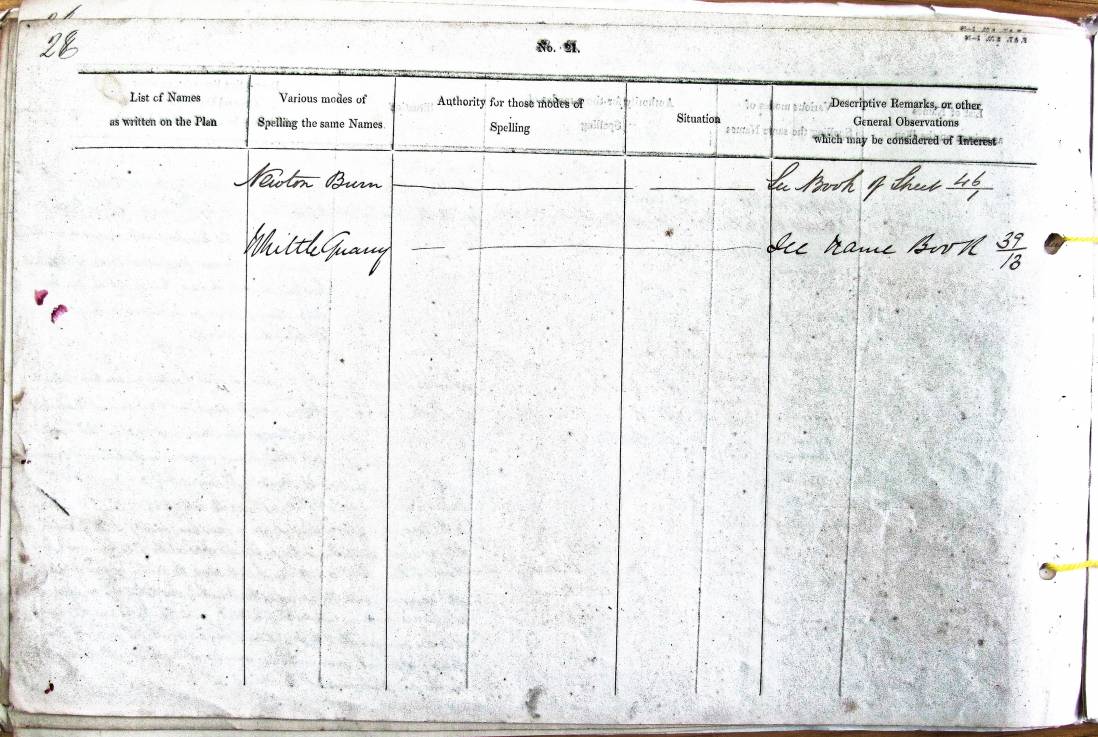 28
No. 21.
List of Names
as written on the Plan
Various modes of
Spelling the same Names
Authority for those modes of
Spelling
Situation
Descriptive Remarks, or other
General Observations
which may be considered of Interest
Newton Burn See Book of Sheet 46/1
Whittle Quarry See Name Book 39/13